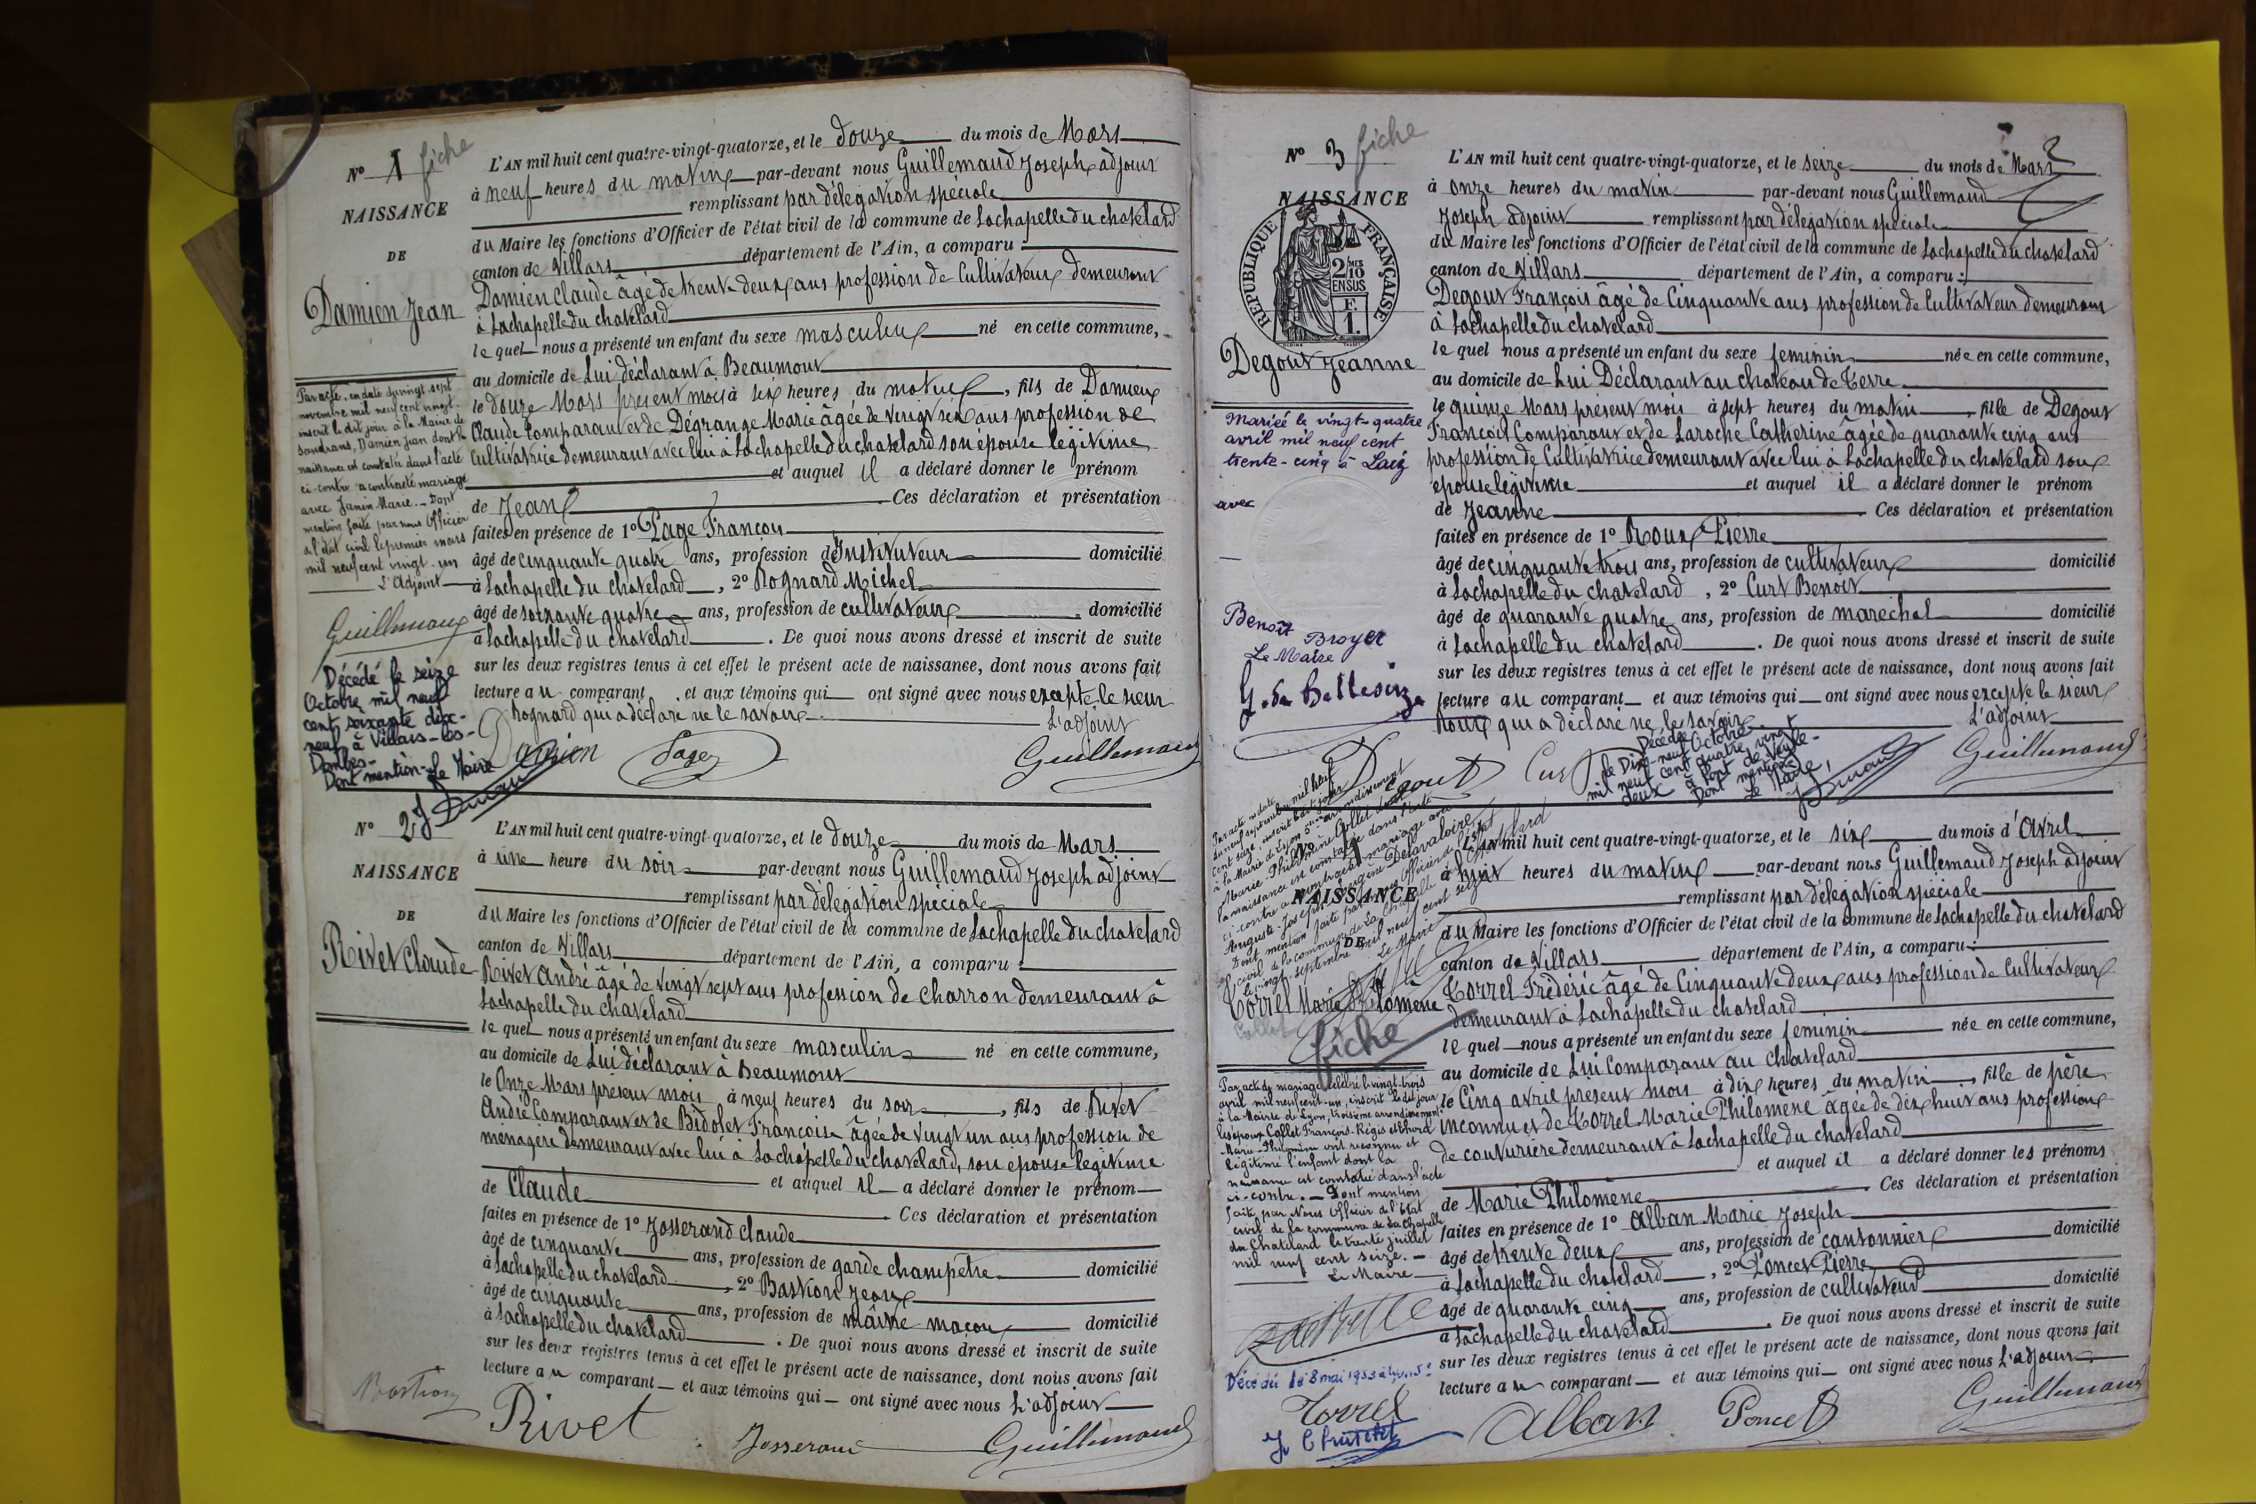 N° 1 fiche
NAISSANCE
DE
Damien Jean
Par acte, en date du vingt-sept
novembre mil neuf cent vingt
inscrit le dit jour à la Mairie de
Sandrans, Damien Jean dont la
naissance est constatée dans l'acte
ci-contre a contracté mariage
avec Janin Marie. - Dont
mention faite par nous Officier
de l'état civil le premier mars
mil neuf cent vingt-un
L'Adjoint
Guillemaud
Décédé le seize
Octobre mil neuf
cent soixante dix-
neuf à Villars-les-
Dombes-
Dont mention-Le Maire
L'AN mil huit cent quatre-vingt-quatorze, et le douze du mois de Mars
à neuf heures du matin par-devant nous Guillemaud Joseph adjoint
remplissant par délégation spéciale
du Maire les fonctions d'Officier de l'état civil de la commune de Lachapelle du chatelard
canton de Villars département de l'Ain, a comparu :
Damien Claude âgé de trente deux ans profession de Cultivateur demeurant
à Lachapelle du chatelard
le quel nous a présenté un enfant du sexe masculin né en cette commune,
au domicile de Lui déclarant à Beaumont
le douze Mars présent mois à six heures du matin, fils de Damien
Claude Comparant et de Dégrange Marie âgée de vingt six ans profession de
Cultivatrice demeurant avec lui à Lachapelle du chatelard son épouse légitime
et auquel il a déclaré donner le prénom
de Jean Ces déclaration et présentation
faites en présence de 1° Page François
âgé de cinquante quatre ans, profession d'Instituteur domicilié
à Lachapelle du chatelard, 2° Rognard Michel
âgé de soixante quatre ans, profession de cultivateur domicilié
à Lachapelle du chatelard. De quoi nous avons dressé et inscrit de suite
sur les deux registres tenus à cet effet le présent acte de naissance, dont nous avons fait
lecture au comparant et aux témoins qui ont signé avec nous excepté le sieur
Rognard qui a déclaré ne le savoir L'adjoint
Damien Page Guillemaud
N° 2
NAISSANCE
DE
Rivet Claude
L'AN mil huit cent quatre-vingt-quatorze, et le douze du mois de Mars
à une heure du soir par-devant nous Guillemaud Joseph adjoint
remplissant par délégation spéciale
du Maire les fonctions d'Officier de l'état civil de la commune de Lachapelle du chatelard
canton de Villars département de l'Ain, a comparu :
Rivet André âgé de vingt sept ans profession de charron demeurant à
Lachapelle du chatelard
le quel nous a présenté un enfant du sexe masculin né en cette commune,
au domicile de Lui déclarant à Beaumont
le Onze Mars présent mois à neuf heures du soir, fils de Rivet
André Comparant et de Bidolet Françoise âgée de vingt un ans profession de
ménagère demeurant avec lui à Lachapelle du chatelard, son épouse légitime
et auquel il a déclaré donner le prénom
de Claude
Ces déclaration et présentation
faites en présence de 1° Josserand Claude
âgé de cinquante ans, profession de garde champêtre domicilié
à Lachapelle du chatelard, 2° Bastion Jean
âgé de cinquante ans, profession de maître maçon domicilié
à Lachapelle du chatelard. De quoi nous avons dressé et inscrit de suite
sur les deux registres tenus à cet effet le présent acte de naissance, dont nous avons fait
lecture au comparant et aux témoins qui ont signé avec nous L'adjoint
Bastion Rivet Josserand Guillemaud
2
N° 3 fiche
NAISSANCE
REPUBLIQUE FRANÇAISE
2/10 MES
EN SUS
F.
1.
Degout Jeanne
Mariée le vingt-quatre
avril mil neuf cent
trente-cinq à Laiz
avec
Benoît Broyer
Le Maire
L'AN mil huit cent quatre-vingt-quatorze, et le seize du mois de Mars
à onze heures du matin par-devant nous Guillemaud
Joseph adjoint remplissant par délégation spéciale
du Maire les fonctions d'Officier de l'état civil de la commune de Lachapelle du chatelard
canton de Villars département de l'Ain, a comparu :
Degout François âgé de Cinquante ans profession de Cultivateur demeurant
à Lachapelle du chatelard
le quel nous a présenté un enfant du sexe feminin née en cette commune,
au domicile de Lui Déclarant au chateau de Terre
le quinze Mars présent mois à sept heures du matin, fille de Degout
François Comparant et de Laroche Catherine âgée de quarante cinq ans
profession de Cultivatrice demeurant avec lui à Lachapelle du chatelard son
épouse légitime et auquel il a déclaré donner le prénom
de Jeanne Ces déclaration et présentation
faites en présence de 1° Roux Pierre
âgé de cinquante trois ans, profession de cultivateur domicilié
à Lachapelle du chatelard, 2° Curt Benoit
âgé de quarante quatre ans, profession de marechal domicilié
à Lachapelle du chatelard. De quoi nous avons dressé et inscrit de suite
sur les deux registres tenus à cet effet le présent acte de naissance, dont nous avons fait
lecture au comparant et aux témoins qui ont signé avec nous excepté le sieur
Roux qui a déclaré ne le savoir L'adjoint
Degout Curt Guillemaud
Décédée
le Dix-neuf Octobre
mil neuf cent quatre vingt
deux à Pont de Veyle-
Dont mention
Le Maire,
Par acte en date
du neuf septembre mil neuf
cent seize, inscrit le dit jour
à la Mairie de Lyon 5ème arrondissement
Marie Philomène Collet dont
la naissance est constatée dans l'acte
ci-contre a contracté mariage avec
Auguste Joseph Eugène Delavaloire
Dont mention faite par nous Officier de l'état
civil de la commune de La Chapelle du Chatelard
le vingt septembre mil neuf cent seize
Le Maire
NAISSANCE
DE
Torrel Marie Philomène
Collet
fiche
Par acte de mariage célébré le vingt-trois
avril mil neuf cent-un, inscrit le dit jour
à la Mairie de Lyon, troisième arrondissement
les époux Collet François-Régis et Torrel
Marie-Philomène ont reconnu et
légitimé l'enfant dont la
naissance est constatée dans l'acte
ci-contre. - Dont mention
faite par Nous Officier de l'Etat
civil de la commune de La Chapelle
du Chatelard le trente juillet
mil neuf cent seize. -
Le Maire
Décédée le 8 mai 1953 à Lyon 5e
L'AN mil huit cent quatre-vingt-quatorze, et le six du mois d'Avril
à huit heures du matin par-devant nous Guillemaud Joseph adjoint
remplissant par délégation spéciale
du Maire les fonctions d'Officier de l'état civil de la commune de Lachapelle du chatelard
canton de Villars département de l'Ain, a comparu :
Torrel Frédéric âgé de Cinquante deux ans profession de Cultivateur
demeurant à Lachapelle du chatelard
le quel nous a présenté un enfant du sexe feminin née en cette commune,
au domicile de Lui Comparant au Chatelard
le Cinq avril présent mois à dix heures du matin, fille de père
inconnu et de Torrel Marie Philomène âgée de dix huit ans profession
de couturière demeurant à Lachapelle du chatelard
et auquel il a déclaré donner les prénoms
de Marie Philomène Ces déclaration et présentation
faites en présence de 1° Alban Marie Joseph
âgé de trente deux ans, profession de cantonnier domicilié
à Lachapelle du chatelard, 2° Poncet Pierre
âgé de quarante cinq ans, profession de cultivateur domicilié
à Lachapelle du chatelard. De quoi nous avons dressé et inscrit de suite
sur les deux registres tenus à cet effet le présent acte de naissance, dont nous avons fait
lecture au comparant et aux témoins qui ont signé avec nous L'adjoint
Torrel Alban Poncet Guillemaud